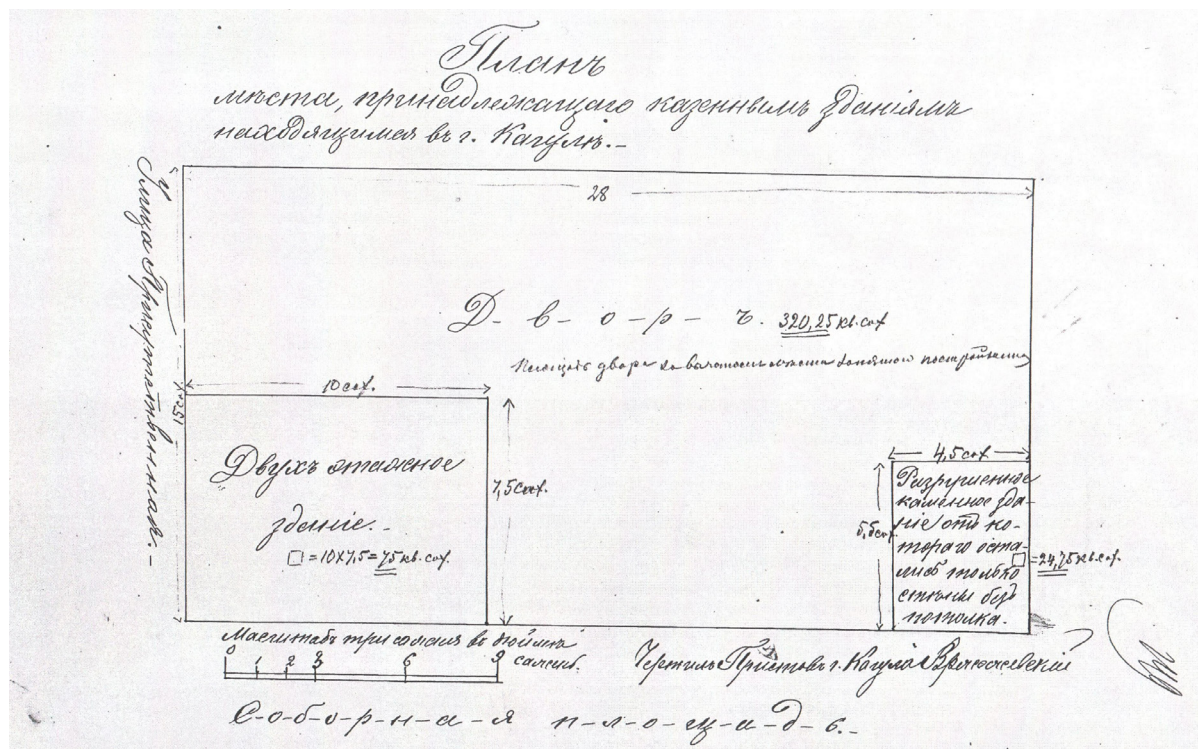 Планъ
мѣста, принадлежащаго казеннымъ зданіямъ
находящимся въ г. Кагулѣ.-
28
Улица Присутственная.-
Д-в-о-р-ъ. 320,25 кв. саж
Площадь двора за вычетомъ мѣста занятой постройками
10 саж.
7,5 саж.
Двухъ этажное
зданіе.-
□=10х7,5=75 кв. саж
4,5 саж
5,5 саж
Разрушенное
каменное зда-
ніе отъ ко-
тораго оста-
лись только
стѣны безъ
потолка.
□=24,75 кв. саж
Масштабъ три сажня въ дюймѣ
0 1 2 3 6 9 сажень.
Чертилъ Приставъ г. Кагула
С-о-б-о-р-н-а-я п-л-о-щ-а-д-ь.-